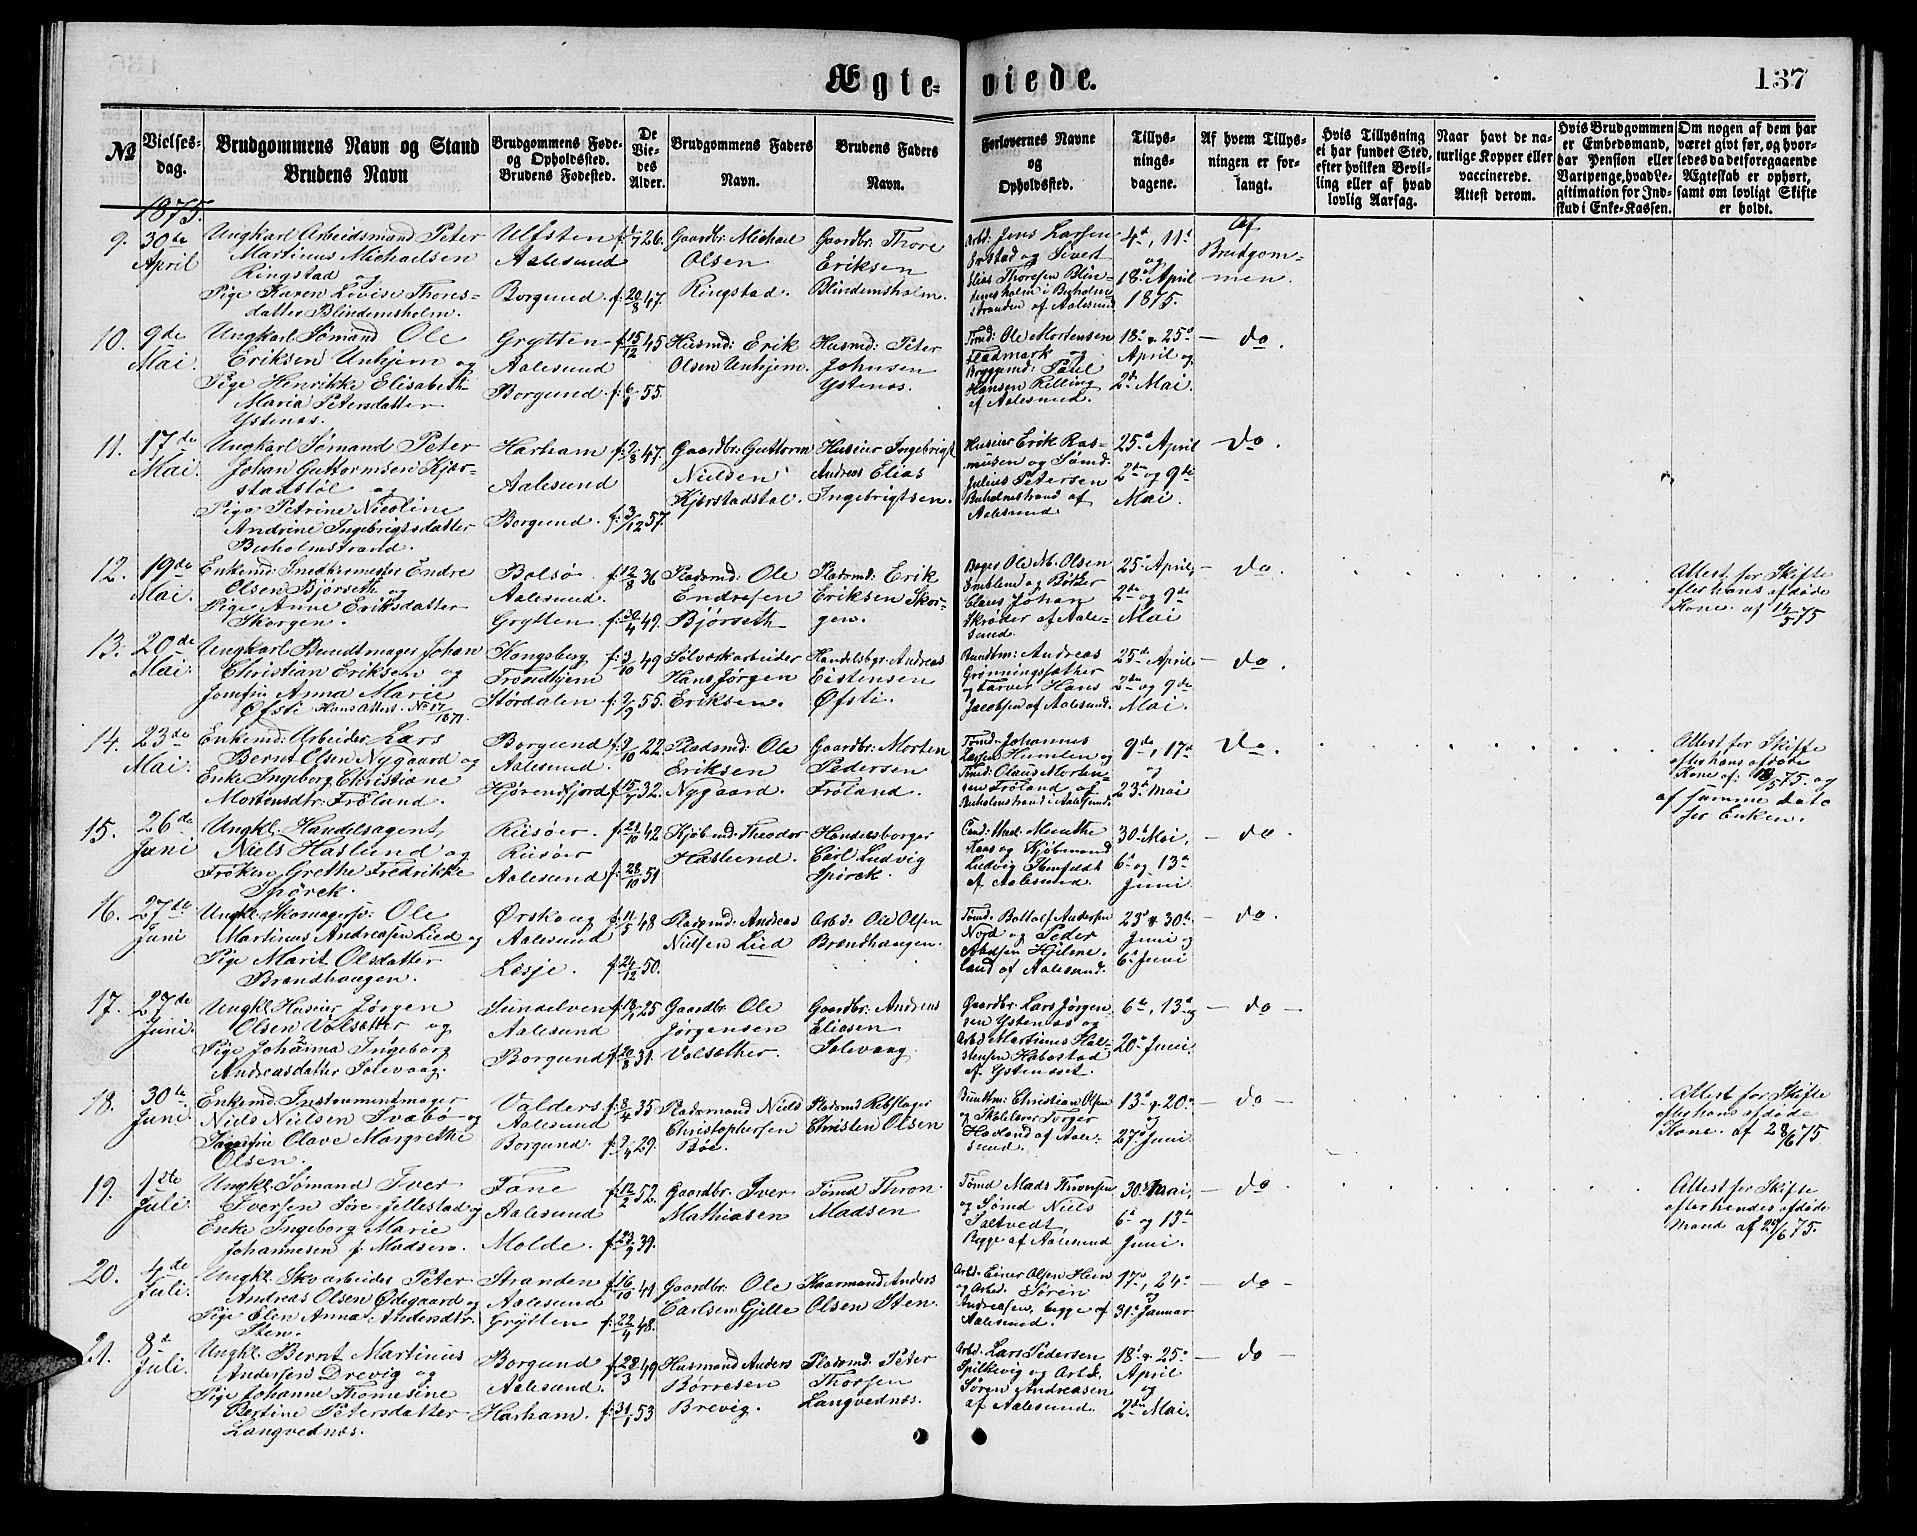 Ægte-
viede.
137
No
Vielses-
dag.
Brudgommens Navn og Stand
Brudens Navn
Brudgommens Føde-
og Opholdssted.
Brudens Fødested.
De
Vie-
des
Alder.
Brudgommens Faders
Navn.
Brudens Faders
Navn.
Forlovernes Navne
og
Opholdssted.
Tillys-
nings-
dagene.
Af hvem Tillys-
ningen er for-
langt.
Hvis Tillysning
ei har fundet Sted,
efter hvilken Bevil-
ling eller af hvad
lovlig Aarsag.
Naar havt de na-
turlige Kopper eller
vaccinerede.
Attest derom.
Hvis Brudgommen
er Embedsmand,
har Pension eller
Vartpenge, hvad Le-
gitimation for Ind-
skud i Enke-Kassen.
Om nogen af dem har
været givt før, og hvor-
ledes da det foregaaende
Ægteskab er ophørt,
samt om lovligt Skifte
er holdt.
1875.
9.
30te
April
Ungkarl Arbeidsmand Peter
Martinus Michaelsen
Ringstad og
Pige Karen Lovise Thores-
datter Blindemsholm.
Ulfsten
Aalesund
Borgund.
f. 1/7 26.
f. 20/8 47.
Gaardbr. Michael
Olsen
Ringstad.
Gaardbr. Thore
Eriksen
Blindemsholm.
Arbd. Jens Larsen
og Sivert
Elias Thoresen Blin-
demsholm i Buholm-
stranden af Aalesund
4de, 11te
og
18de April
1875.
Af
Brudgom-
men.
10.
9de
Mai.
Ungkarl Sømand Ole
Eriksen Unhjem og
Pige Henrikke Elisabeth
Maria Petersdatter
Ystenæs.
Grytten
Aalesund
Borgund.
f. 15/12 45
55.
Husmd: Erik
Olsen Unhjem.
Husmd: Peter
Johnsen
Ystenæs.
Tømd: Ole Mortensen
Fladmark og
Bryggemd: Paul
Hansen Relling
af Aalesund.
18de & 25de
April og
2den Mai.
— do.
11.
17de
Mai.
Ungkarl Sømand Peter
Johan Guttormsen Kjær-
stadstøl og
Pige Petrine Nicoline
Andrine Ingebrigtsdatter
Buholmstrand.
Harham
Aalesund
Borgund.
f. 2/8 47.
f. 3/12 57.
Gaardbr. Guttorm
Nielsen
Kjærstadstøl.
Husier Ingebrigt
Andreas Elias
Ingebrigtsen.
Husier Erik Ras-
musen og Sømd.
Julius Petersen
Buholmstrand af
Aalesund.
25de April
2den og 9de
Mai.
do.
12.
19de
Mai.
Enkemd: Snedkermester Endre
Olsen Bjørseth og
Pige Anne Eriksdatter
Skorgen.
Bolsø
Aalesund.
Grytten
f. 12/8 36
f. 30/4 49.
Pladsmd: Ole
Endresen
Bjørseth
Pladsmd: Erik
Eriksen Skor-
gen.
Bager Ole M. Olsen
Emblem og Bøtker
Claus Johan
Skrøder af Aale-
sund.
25de April,
2den og 9de
Mai
— do.
Attest for Skifte
efter hans afdøde
Kone. af 14/5 75
13.
20de
Mai.
Ungkarl Bundtmager Johan
Christian Eriksen og
Jomfru Anna Marie
Øfsti
Kongsberg
Trondhjem
Størdalen
f. 3/10 49
f. 9/9 55.
Sølvverkarbeider
Hans Jørgen
Eriksen.
Handelsbgr. Andreas
Eistensen
Øfsti.
Bundtm: Andreas
Grønningsæther
og Farver Hans
Jacobsen af Aalesund.
25de April,
2den og 9de
Mai.
— do.
14.
23de
Mai.
Enkemd: Arbeider Lars
Bernt Olsen Nygaard og
Enke Ingeborg Christiane
Mortensdtr. Frøland.
Borgund
Aalesund.
Hjørendfjord
f. 9/10 22.
f. 15/7 32.
Pladsmd: Ole
Eriksen
Nygaard.
Gaardbr: Morten
Pedersen
Frøland.
Tømd: Johannes
Larsen Humlen og
Tømd: Olaus Morten-
sen Frøland af
Buholmstrand i Aalesund.
9de, 17de
og
23de Mai
do.
Attest for Skifte
efter hans afdøde
Kone af: 18/5 75. og
af samme Dato
for Enken.
15.
26de
Juni
Ungkl. Handelsagent,
Niels Haslund og
Frøken Grethe Fredrikke
Spørck.
Riisøer
Riisøer
Aalesund
f. 21/10 42
f. 28/10 51
Kjøbmd: Theodor
Haslund.
Handelsborger
Carl Ludvig
Spørck.
Cand: Med. Munthe
Kaas og Kjøbmand
Ludvig
af Aalesund.
30te Mai,
6te og 13de
Juni
— do.
16.
27de
Juni
Ungkl. Skomagersv: Ole
Martinus Andreasen Lied og
Pige Marit Olsdatter
Brandhaugen.
Ørskoug
Aalesund
Lesje.
f. 11/5 48
f. 24/12 50.
Pladsmd: Andreas
Nielsen Lied
Arbd. Ole Olsen
Brandhaugen.
Tømd: Bottolf Andersen
Nord og Peder
Hjelme-
land af Aalesund.
23de & 30te
Juni og
6te Juni
— do.
17.
27de
Juni.
Ungkl. Husier Jørgen
Olsen Valsætter og
Pige Johanna Ingeborg
Andreasdatter Solevaag.
Sundelven
Aalesund
Borgund
25
f. 20/8 31.
Gaardbr. Ole
Jørgensen
Valsæther.
Gaardbr. Andreas
Eliasen
Solevaag.
Gaardbr. Lars Jørgen-
sen Ystenæs og
Arbd. Martinus Hal-
stensen Habostad
af Ystenæset.
6te, 13de og
20de Juni.
— do —
18.
30te
Juni.
Enkemd. Instrumentmager
Niels Nielsen Svabø og
Jomfru Olave Margrethe
Olsen.
Valders
Aalesund
Borgund.
f. 8/4 35
f. 9/4 29.
Pladsmand Niels
Christophersen
Bøe.
Pladsmd Rebslager
Christen Olsen
Bundtm: Christian Olsen
og Skolelærer Torger
Hovland af Aale-
sund.
13de & 20de
og
27de Juni
— do —
Attest for Skifte
efter hans afdøde
Kone. af 28/6 75.
19.
1ste
Juli.
Ungkl. Sømand Iver
Iversen Søre-Jellestad og
Enke Ingeborg Marie
Johannesen f. Madsen.
Fane
Aalesund
Molde.
f. 12/2 52.
f. 23/9 39.
Gaardbr. Iver
Mathiasen
Tømd Thron
Madsen
Tømd Mads Thronsen
og Sømd Niels
Saltvedt,
Begge af Aalesund
30te Mai,
6te og 13de
Juni.
— do
Attest for Skifte
efter hendes afdøde
Mand af 29/6 75.
20.
4de
Juli.
Ungkl. Skoarbeider Peter
Andreas Olsen Ødegaard og
Pige Elen Anna Andersdtr.
Sten.
Stranden
Aalesund
Grytten
f. 16/10 41
f. 22/4 48.
Gaardbr. Ole
Carlsen Gjelle
Kaarmand Anders
Olsen Sten.
Arbd. Einer Olsen Heen
og Arbd. Søren
Andreassen, begge af
Aalesund.
17de, 24de
og
31te Januar
— do —
21.
8de
Juli.
Ungkl. Bernt Martinus
Andersen Brevig og
Pige Johanne Thomesine
Bertine Petersdatter
Langvednæs.
Borgund
Aalesund.
Harham.
f. 28/3 49
f. 31/1 53
Husmand Anders
Børresen
Brevig.
Pladsmd. Peter
Thorsen
Langvednæs.
Arbd. Lars Pedersen
Spilkevig og Arbd.
Søren Andreasen
af Aalesund.
18de & 25de
April
og
2den Mai.
— do —